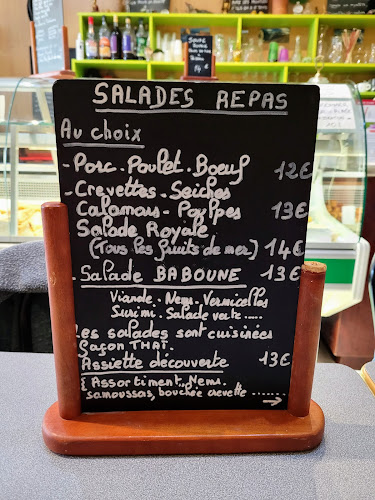 SALADES REPAS
Au choix
- Porc. Poulet. Boeuf 12€
- Crevettes. Seiches
Calamars - Poulpes 13€
Salade Royale
(Tous les fruits de mer) 14€
- Salade BABOUNE 13€
Viande. Nems. Vermicelles
Surimi. Salade verte.....
Les salades sont cuisinées
façon THAÏ.
Assiette découverte 13€
(Assortiment.. Nems.
samoussas, bouchée crevette ........ →